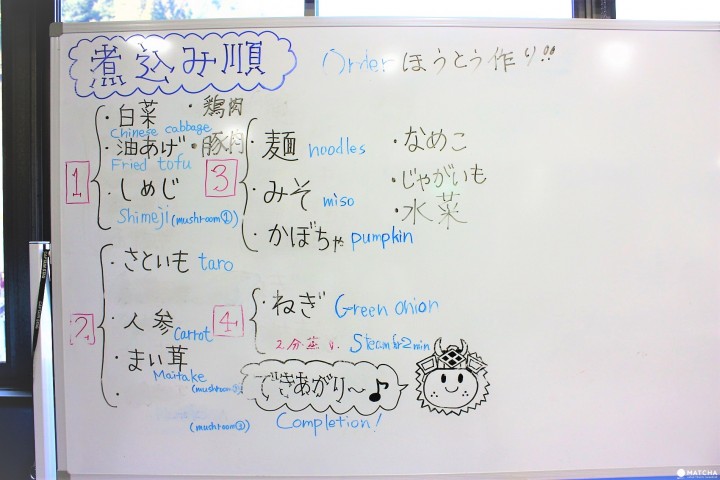 煮込み順 Order ほうとう作り!!
1
・白菜 ・鶏肉
Chinese cabbage
・油あげ ・豚肉
Fried tofu
・しめじ
Shimeji (mushroom①)
2
・さといも taro
・人参 Carrot
・まい茸
Maitake
(mushroom②)
・
(mushroom③)
3
・麺 noodles
・みそ miso
・かぼちゃ pumpkin
・なめこ
・じゃがいも
・水菜
4
・ねぎ Green onion
2分蒸し Steam for 2 min
できあがり〜♪
Completion!
MATCHA